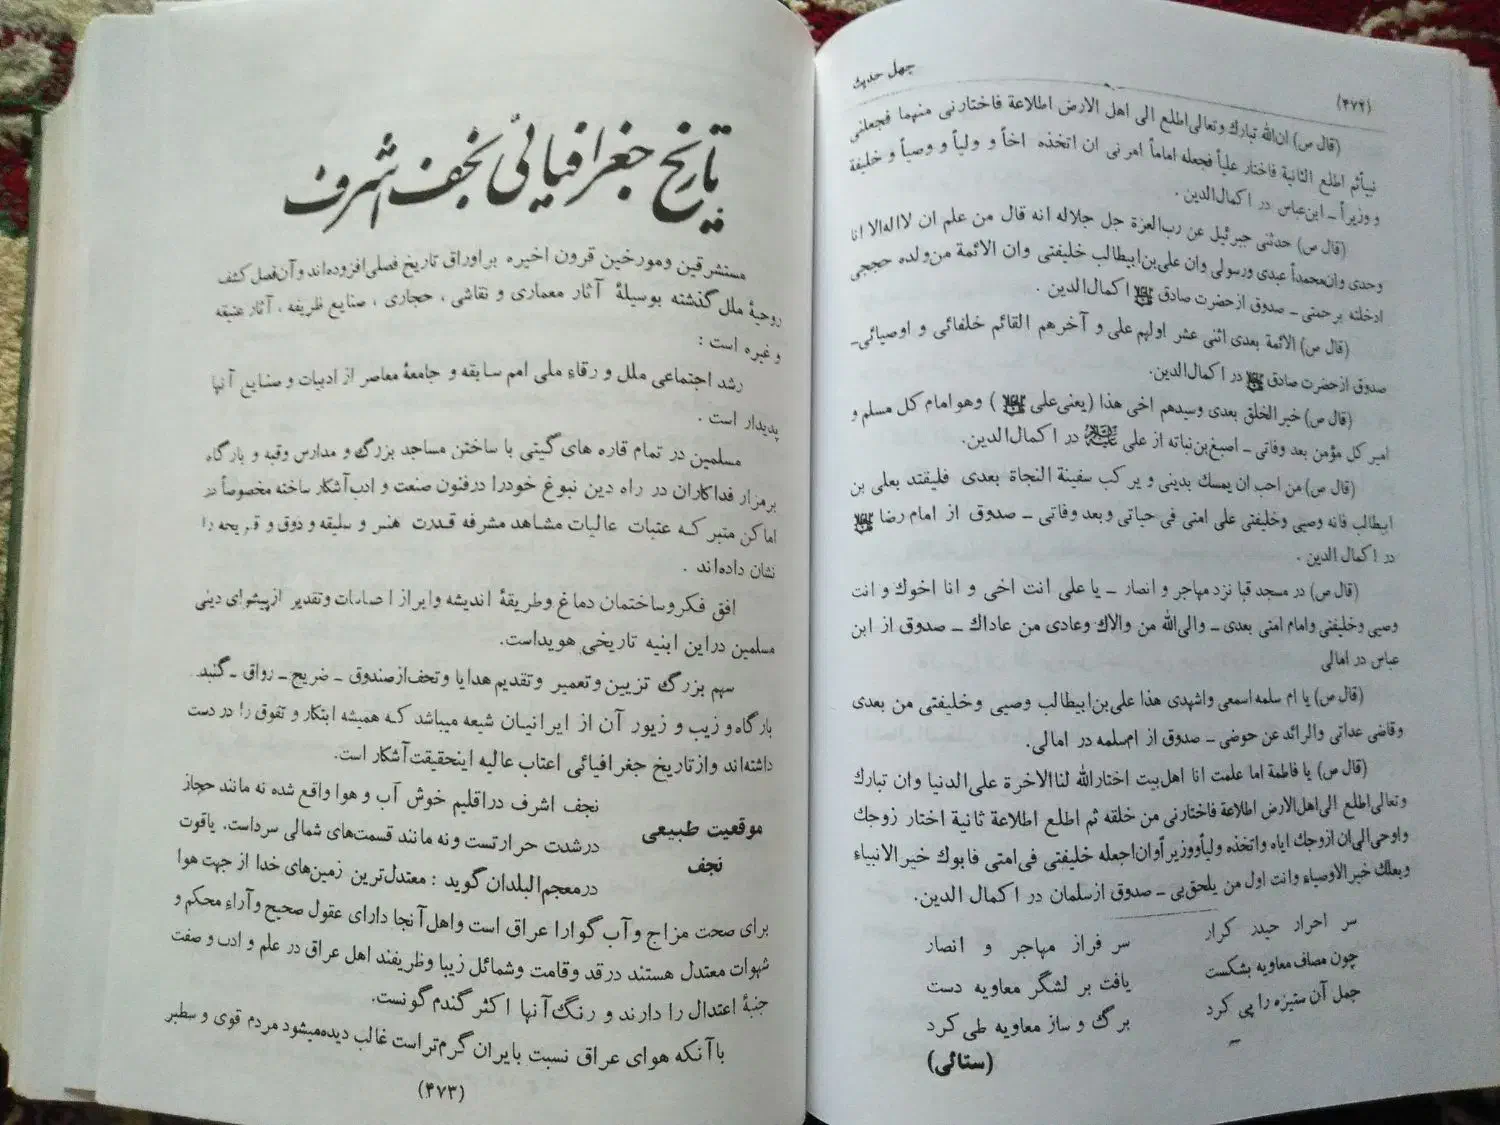 (۴۷۲)
چهل حدیث
(قال ص) ان‌الله تبارك وتعالی اطلع الی اهل الارض اطلاعة فاختارنی منهما فجعلنی
نبیأثم اطلع الثانیة فاختار علیأ فجعله اماماً امرنی ان اتخذه اخأ و ولیأ و وصیأ و خلیفة
و وزیرأ ـ ابن‌عباس در اکمال‌الدین .
(قال ص) حدثنی جبرئیل عن رب‌العزة جل جلاله انه قال من علم ان لااله‌الا انا
وحدی وان‌محمدأ عبدی ورسولی وان علی‌بن‌ابیطالب خلیفتی وان الائمة من‌ولده حججی
ادخلته برحمتی ـ صدوق ازحضرت صادق اکمال‌الدین .
(قال ص) الائمة بعدی اثنی عشر اولهم علی و آخرهم القائم خلفائی و اوصیائی‌ـ
صدوق ازحضرت صادق در اکمال‌الدین.
(قال ص) خیرالخلق بعدی وسیدهم اخی هذا (یعنی‌علی ) وهو امام کل مسلم و
امیر کل مؤمن بعد وفاتی ـ اصبغ‌بن‌نباته از علی علیه‌السلام در اکمال‌الدین.
(قال ص) من احب ان یمسك بدینی و یرکب سفینة النجاة بعدی فلیقتد بعلی بن
ابیطالب فانه وصیی وخلیفتی علی امتی فی حیاتی وبعد وفاتی ـ صدوق از امام رضا
در اکمال الدین .
(قال ص) در مسجد قبا نزد مهاجر و انصار ـ یا علی انت اخی و انا اخوك و انت
وصیی وخلیفتی وامام امتی بعدی ـ والی‌الله من والاك وعادی من عاداك ـ صدوق از ابن
عباس در امالی
(قال ص) یا ام سلمه اسمعی واشهدی هذا علی‌بن‌ابیطالب وصیی وخلیفتی من بعدی
وقاضی عداتی والرائد عن حوضی ـ صدوق از ام‌سلمه در امالی.
(قال ص) یا فاطمة اما علمت انا اهل‌بیت اختارالله لناالاخرة علی‌الدنیا وان تبارك
وتعالی اطلع الی‌اهل‌الارض اطلاعة فاختارنی من خلقه ثم اطلع اطلاعة ثانیة اختار زوجك
واوحی‌الی‌ان ازوجك ایاه واتخذه ولیأووزیرأ وان‌اجعله خلیفتی فی‌امتی فابوك خیرالانبیاء
وبعلك خیرالاوصیاء وانت اول من یلحق‌بی ـ صدوق ازسلمان در اکمال الدین.
سر احرار حیدر کرار سر فراز مهاجر و انصار
چون مصاف معاویه بشکست یافت بر لشگر معاویه دست
جمل آن ستیزه را پی کرد برگ و ساز معاویه طی کرد
(ستالی)
تاریخ جغرافیائی نجف اشرف
مستشرقین ومورخین قرون اخیره براوراق تاریخ فصلی‌افزوده‌اند و آن‌فصل کشف
روحیهٔ ملل گذشته بوسیلهٔ آثار معماری و نقاشی ، حجاری ، صنایع ظریفه ، آثار عتیقه
و غیره است :
رشد اجتماعی ملل و رقاء ملی امم سابقه و جامعهٔ معاصر از ادبیات و صنایع آنها
پدیدار است .
مسلمین در تمام قاره های گیتی با ساختن مساجد بزرگ و مدارس وقبه و بارگاه
برمزار فداکاران در راه دین نبوغ خودرا درفنون صنعت و ادب‌آشکار ساخته مخصوصأ در
اماکن متبرکـه عتبات عالیات مشاهد مشرفه قدرت هنر و سلیقه و ذوق و قریحه را
نشان داده‌اند .
افق فکروساختمان دماغ وطریقهٔ اندیشه وابراز احساسات وتقدیر ازپیشوای دینی
مسلمین دراین ابنیه تاریخی هویداست.
سهم بزرگ تزیین وتعمیر وتقدیم هدایا وتحف‌ازصندوق ـ ضریح ـ رواق ـ گنبد
بارگاه و زیب و زیور آن از ایرانیان شیعه میباشد کـه همیشه ابتکار و تفوق را در دست
داشته‌اند وازتاریخ جغرافیائی اعتاب عالیه اینحقیقت‌آشکار است.
موقعیت طبیعی
نجف
نجف اشرف دراقلیم خوش آب و هوا واقع شده نه مانند حجاز
درشدت حرارتست ونه مانند قسمت‌های شمالی سرداست. یاقوت
درمعجم‌البلدان گوید : معتدل‌ترین زمین‌های خدا از جهت هوا
برای صحت مزاج وآب گوارا عراق است واهل‌آنجا دارای عقول صحیح وآراء محکم و
شهوات معتدل هستند درقد وقامت وشمائل زیبا وظریفند اهل عراق در علم و ادب و صفت
جنبهٔ اعتدال را دارند و رنگ‌آنها اکثر گندم گونست.
باآنکه هوای عراق نسبت بایران گرم‌تراست غالب دیده‌میشود مردم قوی و سطبر
(۴۷۳)